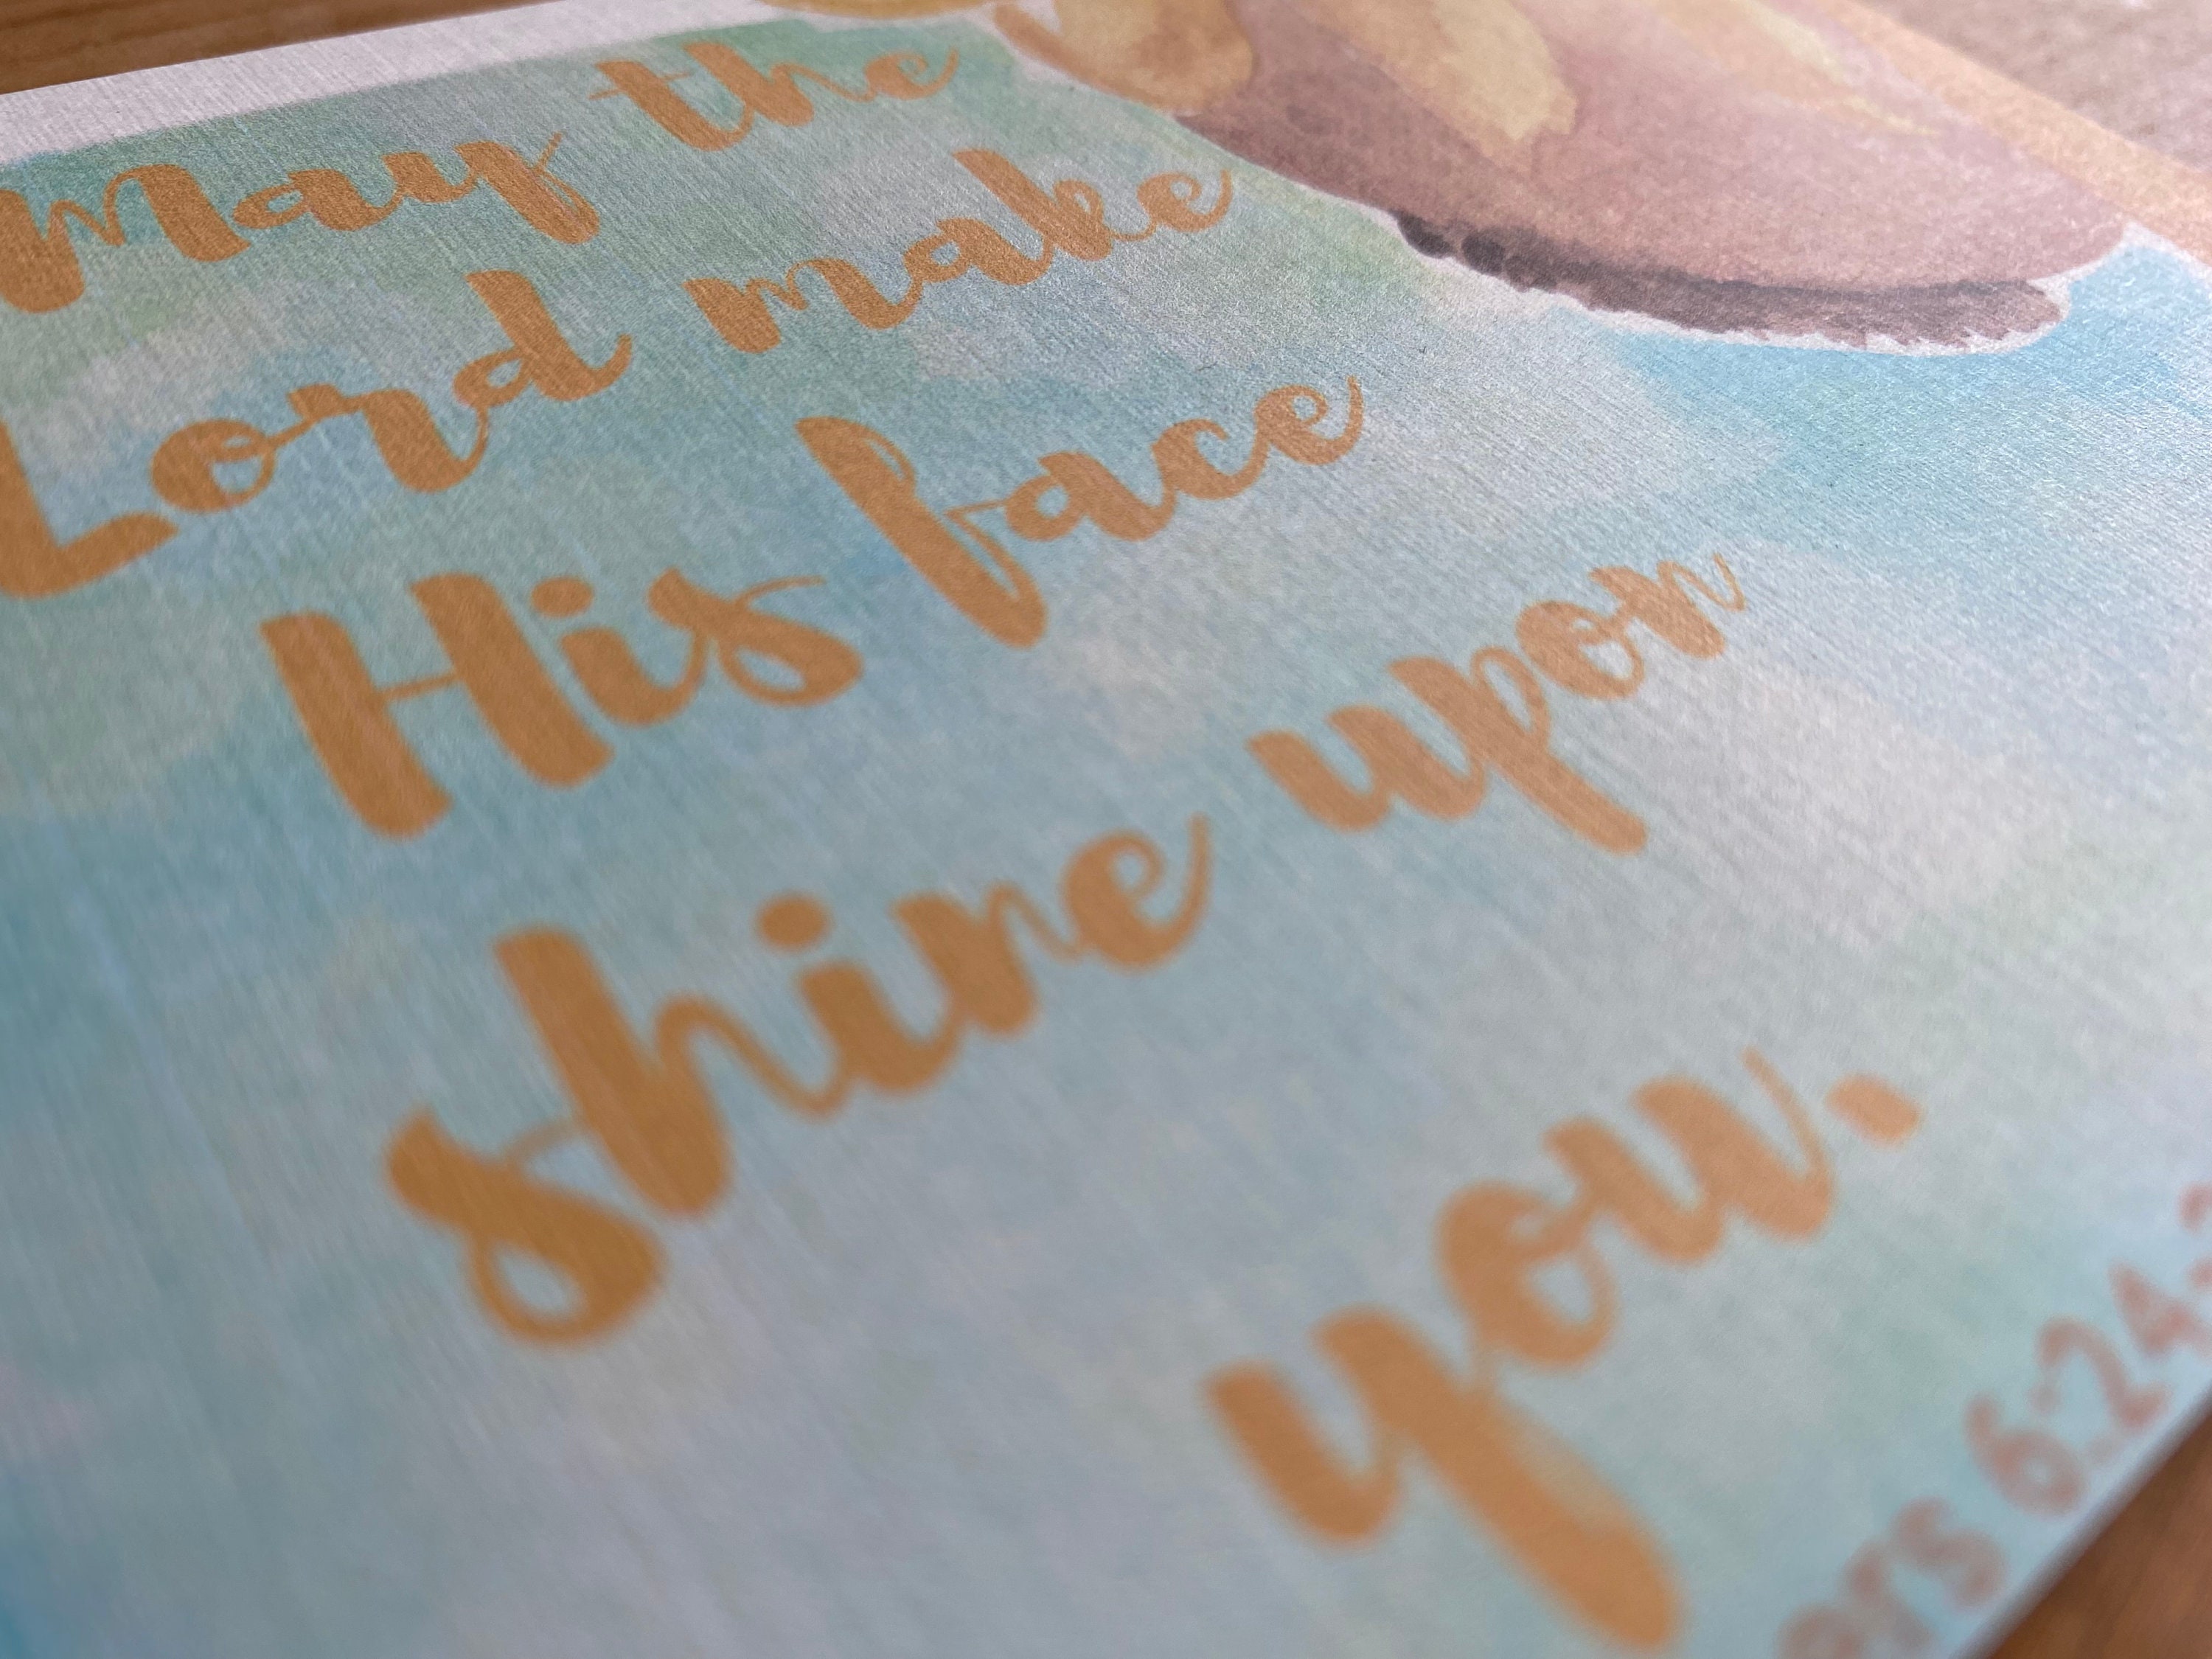 May the
Lord make
His face
shine upon
you.
ers 6:24-